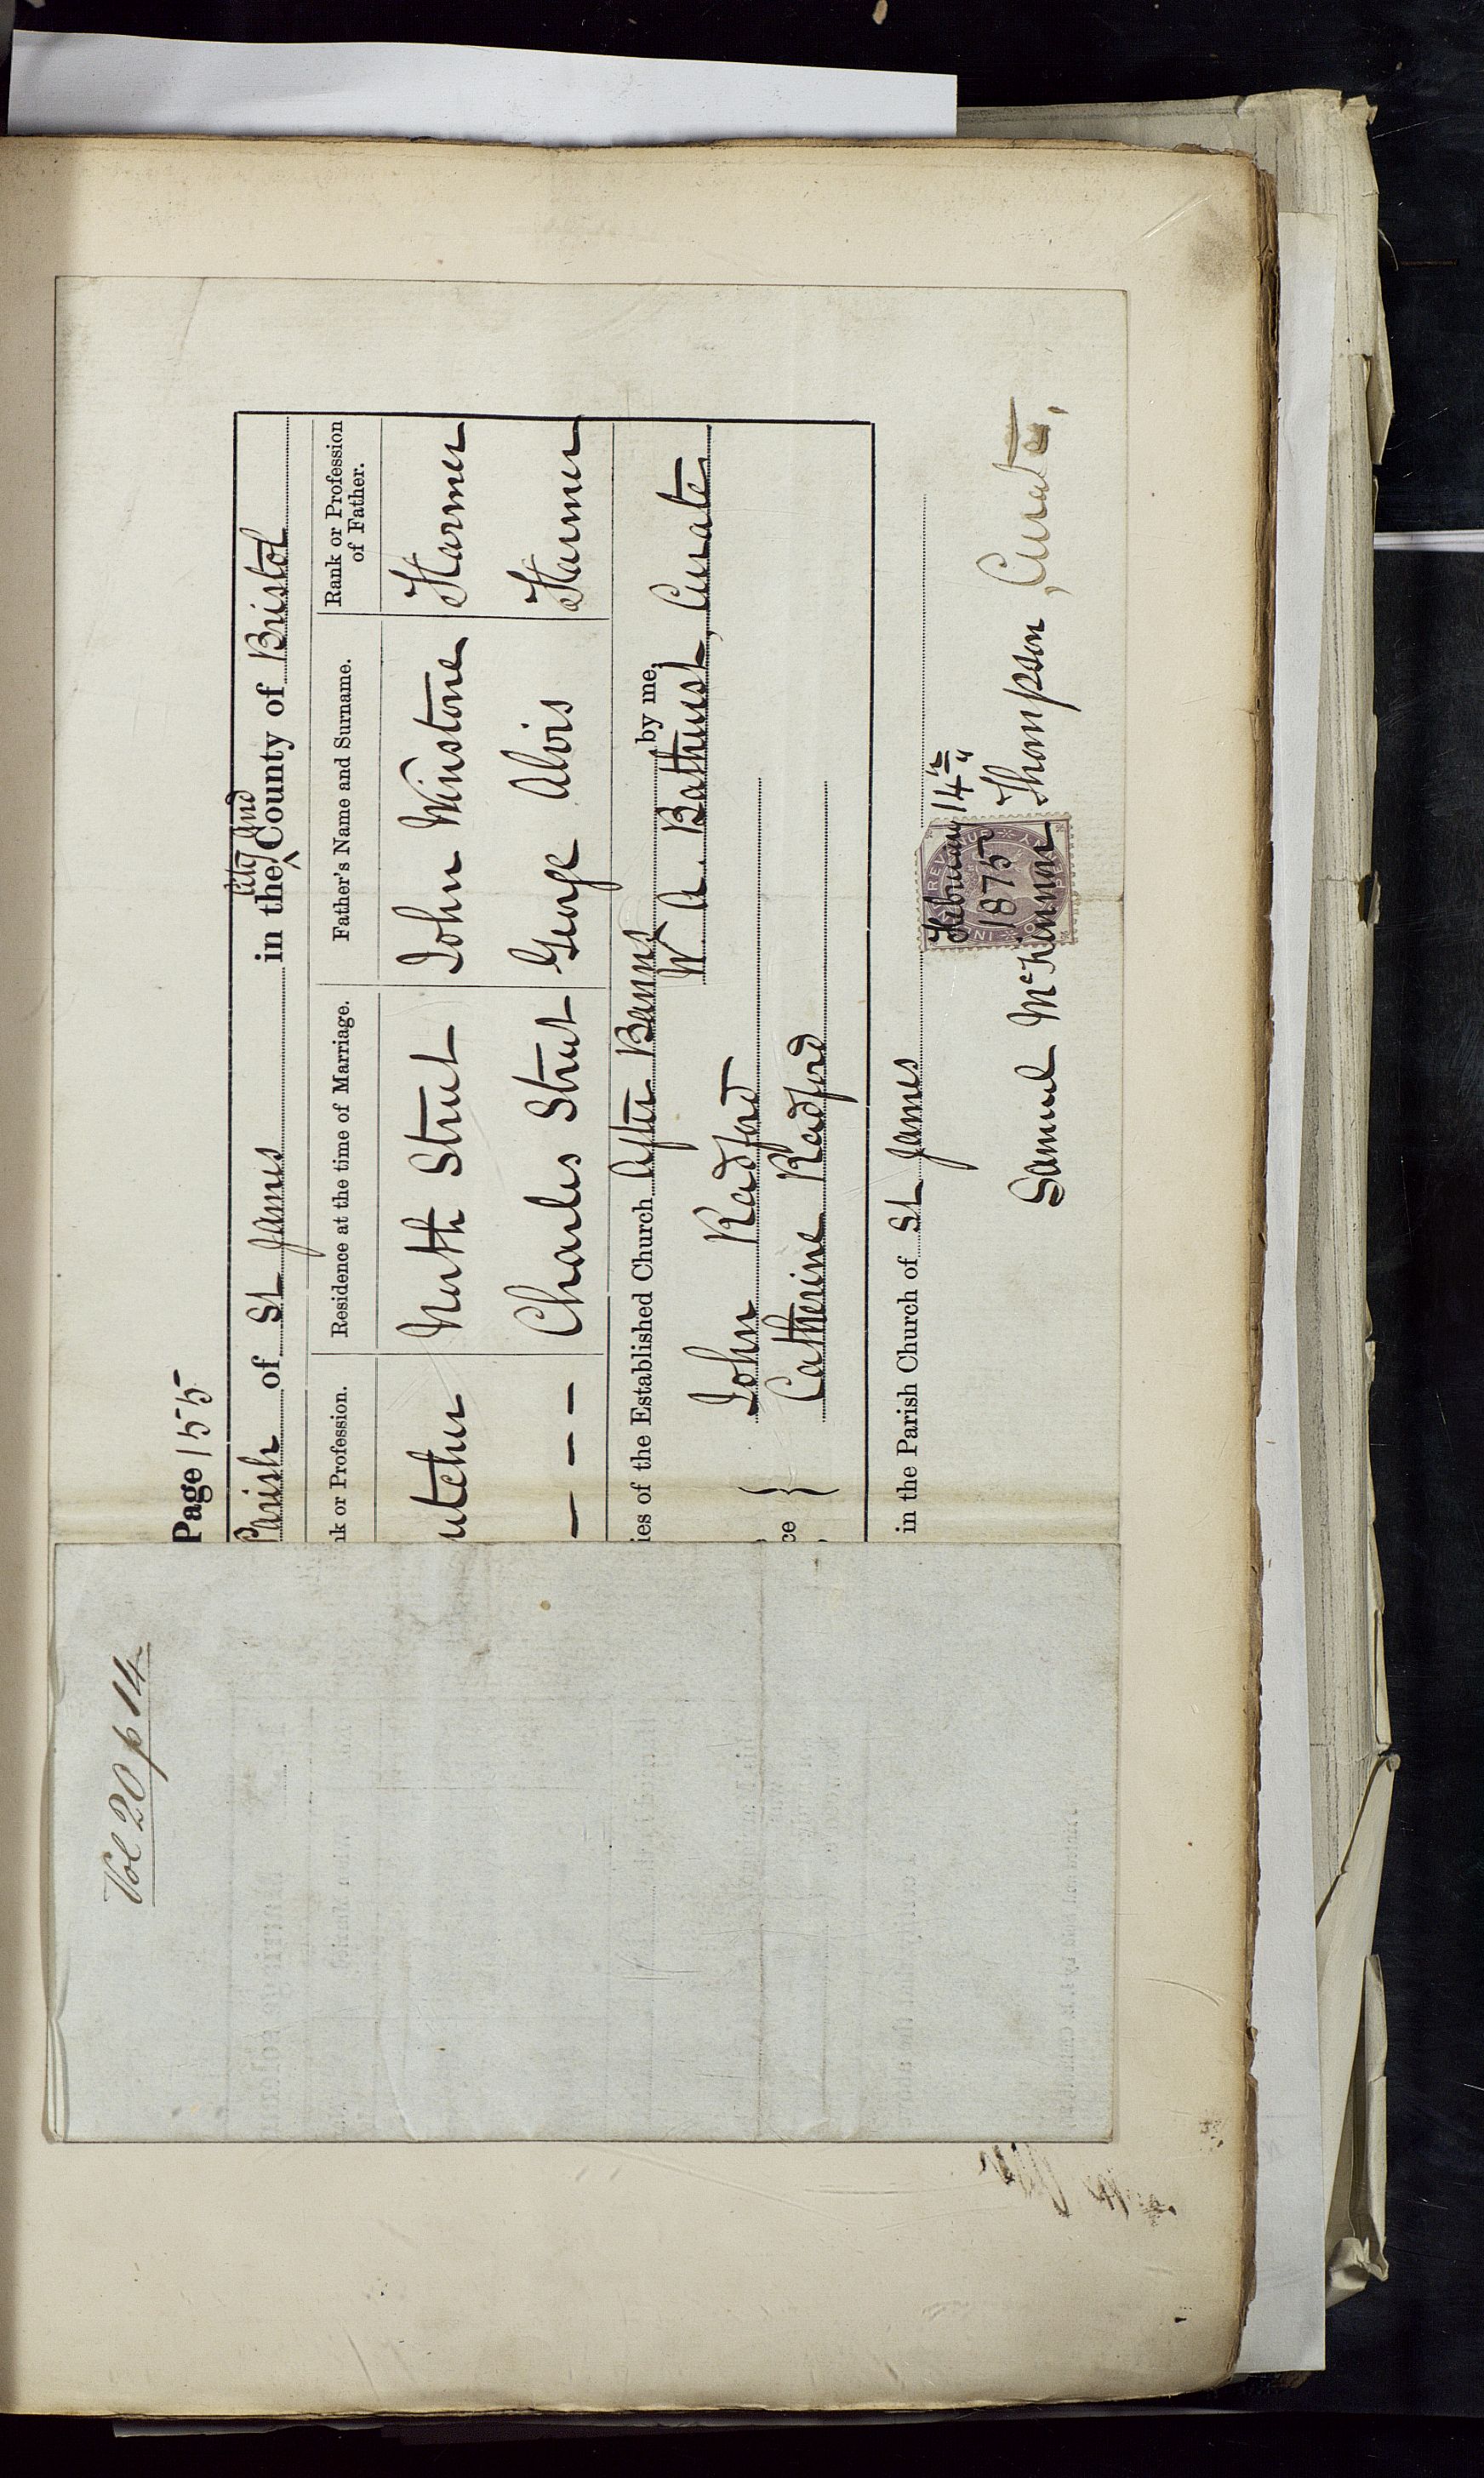 Vol 20 p 14
Page 155
city and
Parish of St James in the ^ County of Bristol
nk or Profession. Residence at the time of Marriage. Father's Name and Surname. Rank or Profession of Father.
utcher North Street John Winstone Farmer
– – – Charles Street George Alvis Farmer
ies of the Established Church After Banns by me,
W. A. Bathurst, Curate
John Radford
ce } Catherine Radford
in the Parish Church of St James
February 14th
1875
Samuel McKinnon Thompson, Curate,